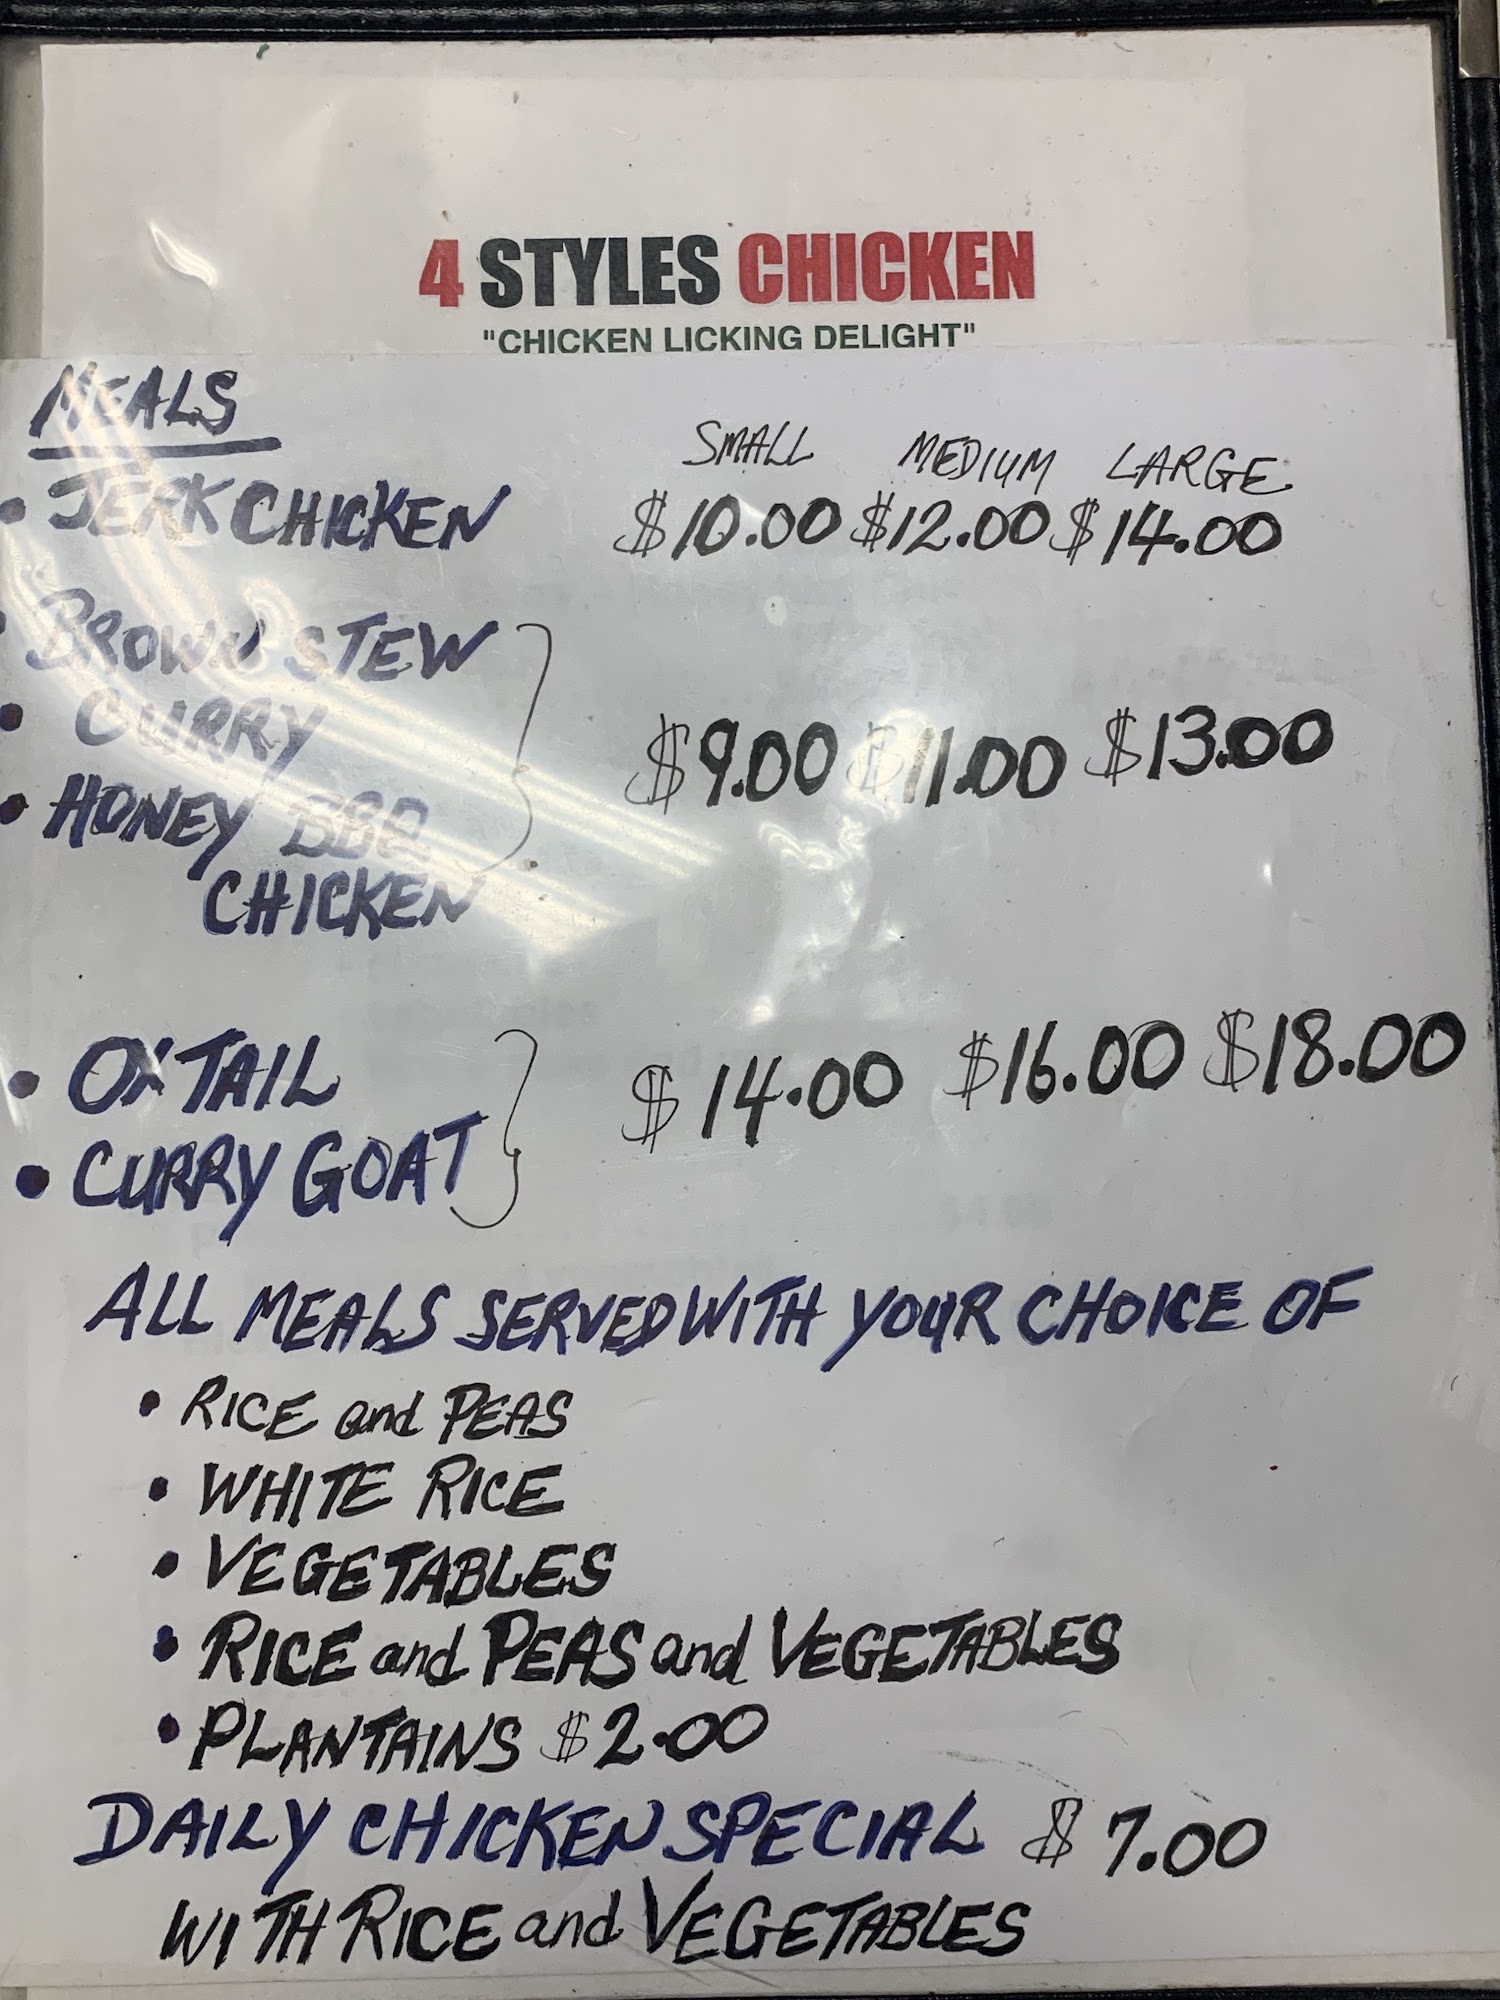 4 STYLES CHICKEN
"CHICKEN LICKING DELIGHT"
MEALS
SMALL MEDIUM LARGE
• JERK CHICKEN $10.00 $12.00 $14.00
• BROWN STEW
• CURRY $9.00 $11.00 $13.00
• HONEY BBQ
CHICKEN
• OXTAIL $14.00 $16.00 $18.00
• CURRY GOAT
ALL MEALS SERVED WITH YOUR CHOICE OF
• RICE and PEAS
• WHITE RICE
• VEGETABLES
• RICE and PEAS and VEGETABLES
• PLANTAINS $2.00
DAILY CHICKEN SPECIAL $7.00
WITH RICE and VEGETABLES